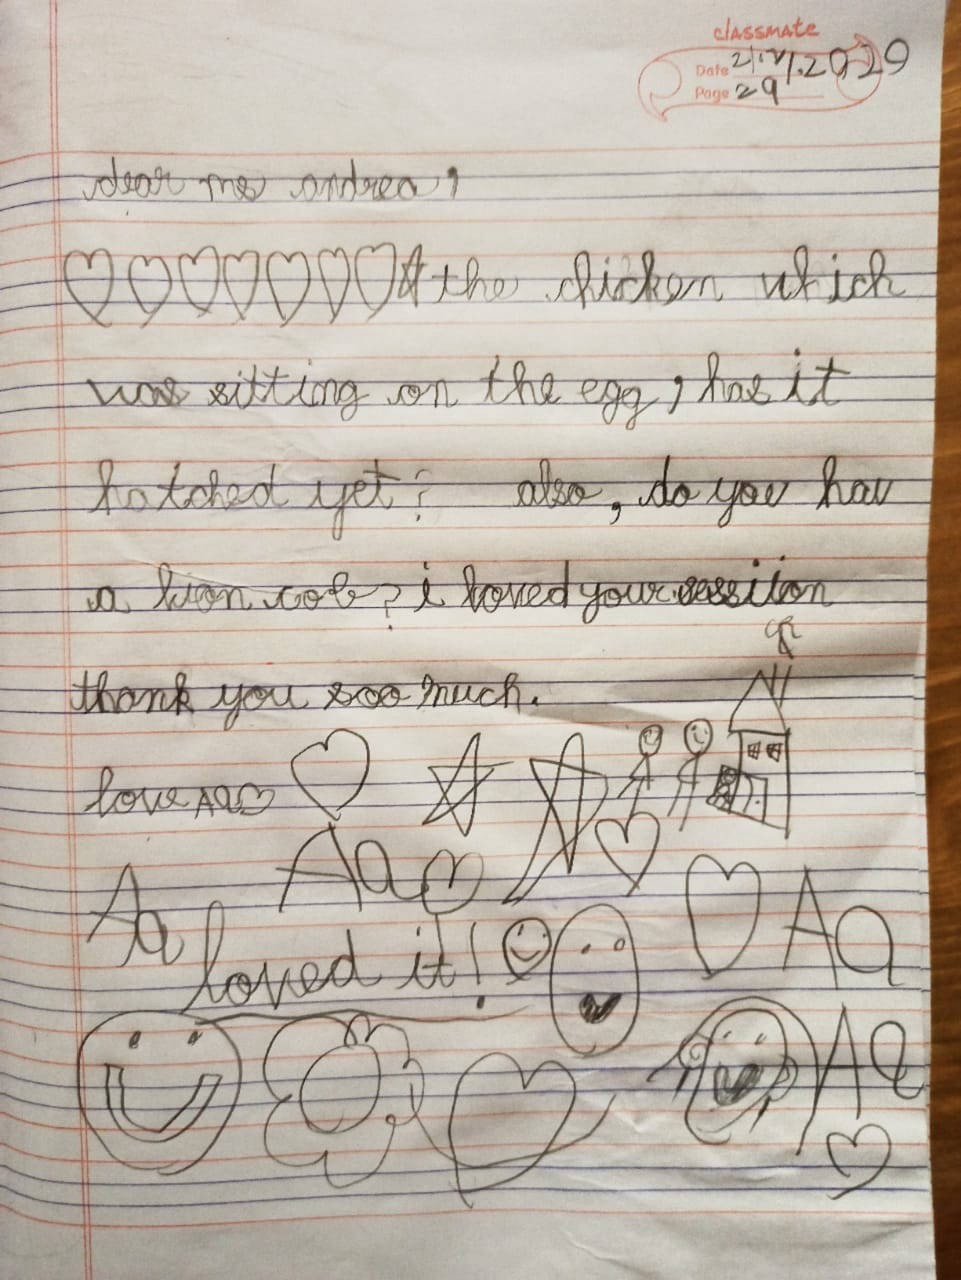 classMate
Date 21.12/.2029
Page 29
dear ms andrea,
the chicken which
was sitting on the egg, has it
hatched yet? also, do you hav
a lion cob? i loved your session
thank you soo much.
love AQ
AQ
AQ
AQ
loved it!
AQ